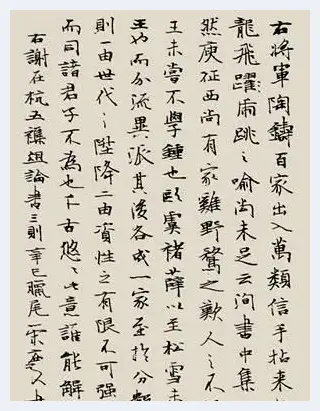 右將軍陶鑄百家出入萬類信手拈來
龍飛躍虎跳之喻尚未足云洵書中集
然庾征西尚有家雞野鶩之歎人之不
王未嘗不學鍾也歐虞褚薛以至松雪
王也而分流異派其後各成一家至於分
則一由世代之陞降二由資性之有限不可強
而同諸君子不為也千古悠悠此意誰能解
右謝在杭五襍俎論書三則辛巳臘尾